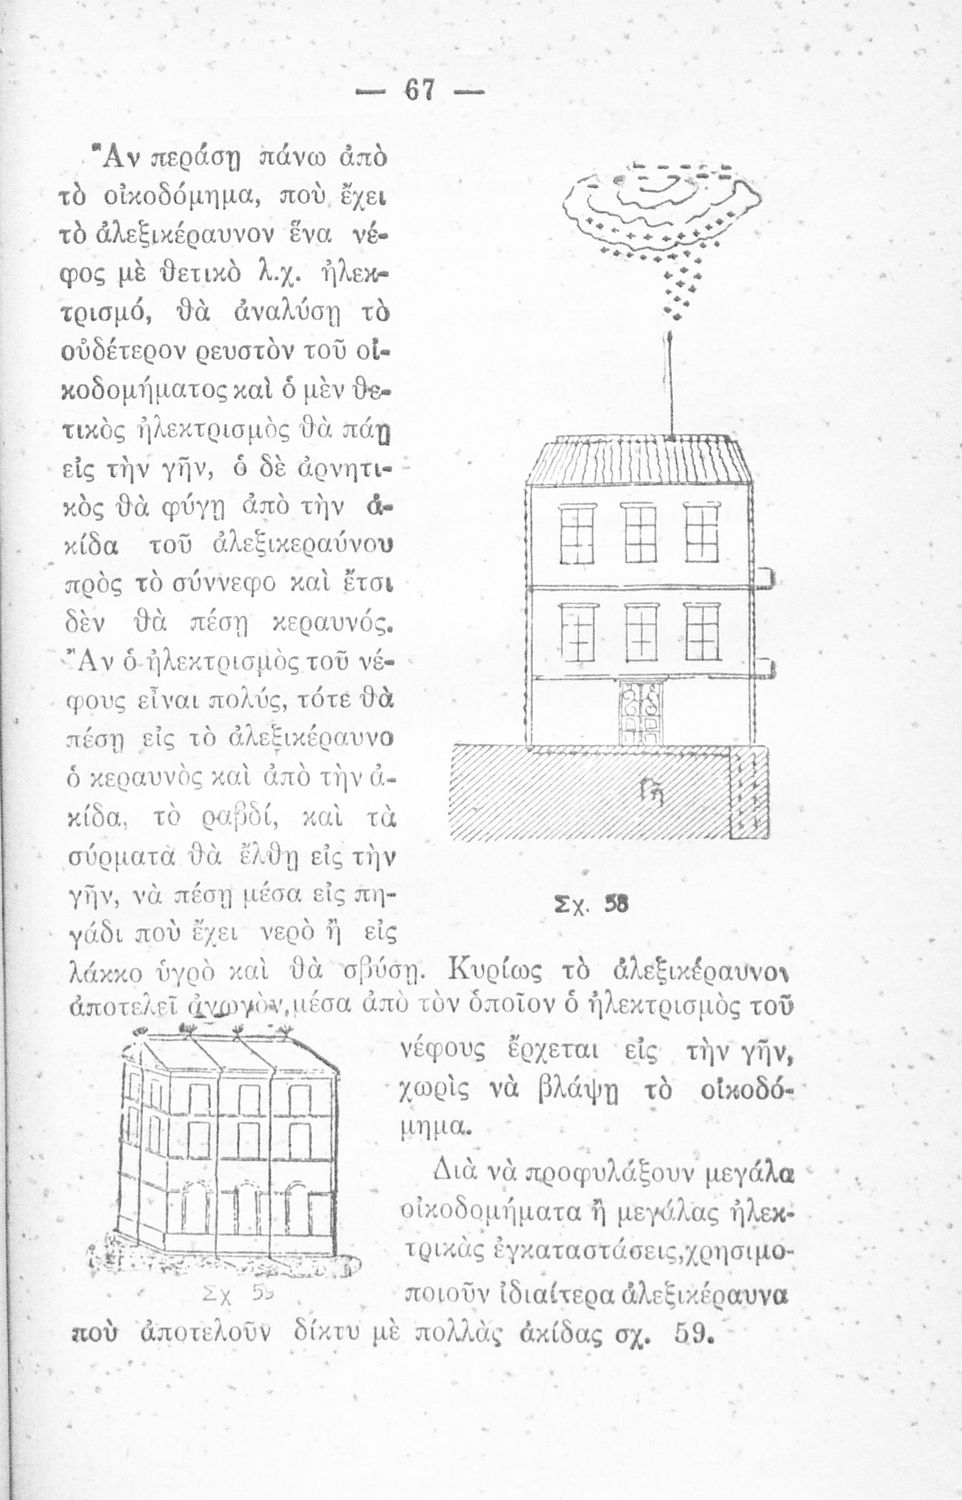 — 67 —
Ἂν περάσῃ πάνω ἀπὸ
τὸ οἰκοδόμημα, ποὺ ἔχει
τὸ ἀλεξικέραυνον ἕνα νέ-
φος μὲ θετικὸ λ.χ. ἠλεκ-
τρισμό, θὰ ἀναλύσῃ τὸ
οὐδέτερον ρευστὸν τοῦ οἰ-
κοδομήματος καὶ ὁ μὲν θε-
τικὸς ἠλεκτρισμὸς θὰ πάῃ
εἰς τὴν γῆν, ὁ δὲ ἀρνητι-
κὸς θὰ φύγῃ ἀπὸ τὴν ἀ-
κίδα τοῦ ἀλεξικεραύνου
πρὸς τὸ σύννεφο καὶ ἔτσι
δὲν θὰ πέσῃ κεραυνός.
Ἂν ὁ ἠλεκτρισμὸς τοῦ νέ-
φους εἶναι πολύς, τότε θὰ
πέσῃ εἰς τὸ ἀλεξικέραυνο
ὁ κεραυνὸς καὶ ἀπὸ τὴν ἀ-
κίδα, τὸ ραβδί, καὶ τὰ
σύρματα θὰ ἔλθῃ εἰς τὴν
γῆν, νὰ πέσῃ μέσα εἰς πη-
γάδι ποὺ ἔχει νερὸ ἢ εἰς
Γῆ
Σχ. 58
λάκκο ὑγρὸ καὶ θὰ σβύσῃ. Κυρίως τὸ ἀλεξικέραυνον
ἀποτελεῖ ἀγωγὸν, μέσα ἀπὸ τὸν ὁποῖον ὁ ἠλεκτρισμὸς τοῦ
νέφους ἔρχεται εἰς τὴν γῆν,
χωρὶς νὰ βλάψῃ τὸ οἰκοδό-
μημα.
Διὰ νὰ προφυλάξουν μεγάλα
οἰκοδομήματα ἢ μεγάλας ἠλεκ-
τρικὰς ἐγκαταστάσεις, χρησιμο-
ποιοῦν ἰδιαίτερα ἀλεξικέραυνα
Σχ 59
ποὺ ἀποτελοῦν δίκτυ μὲ πολλὰς ἀκίδας σχ. 59.